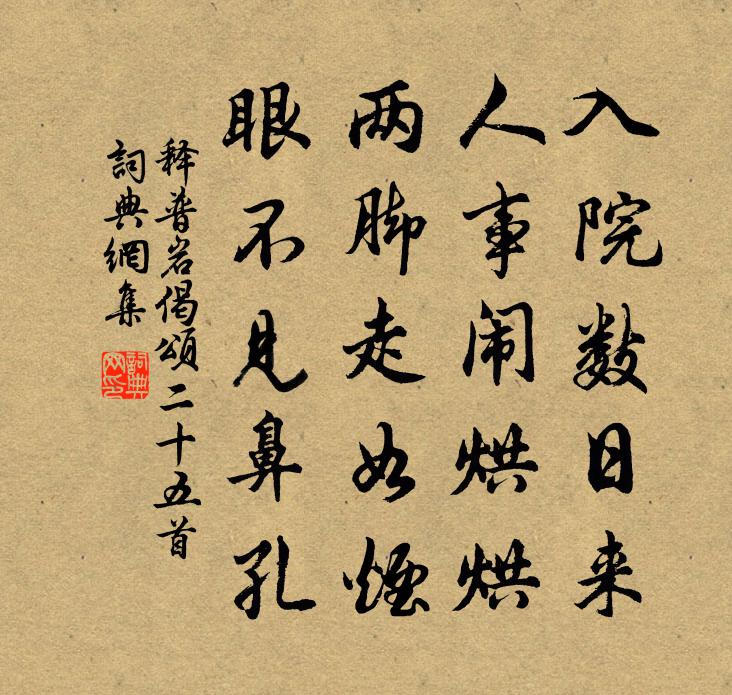 入院数日来
人事闹烘烘
两脚走如烟
眼不见鼻孔
释普岩偈颂二十五首
詞典網集
詞典网印